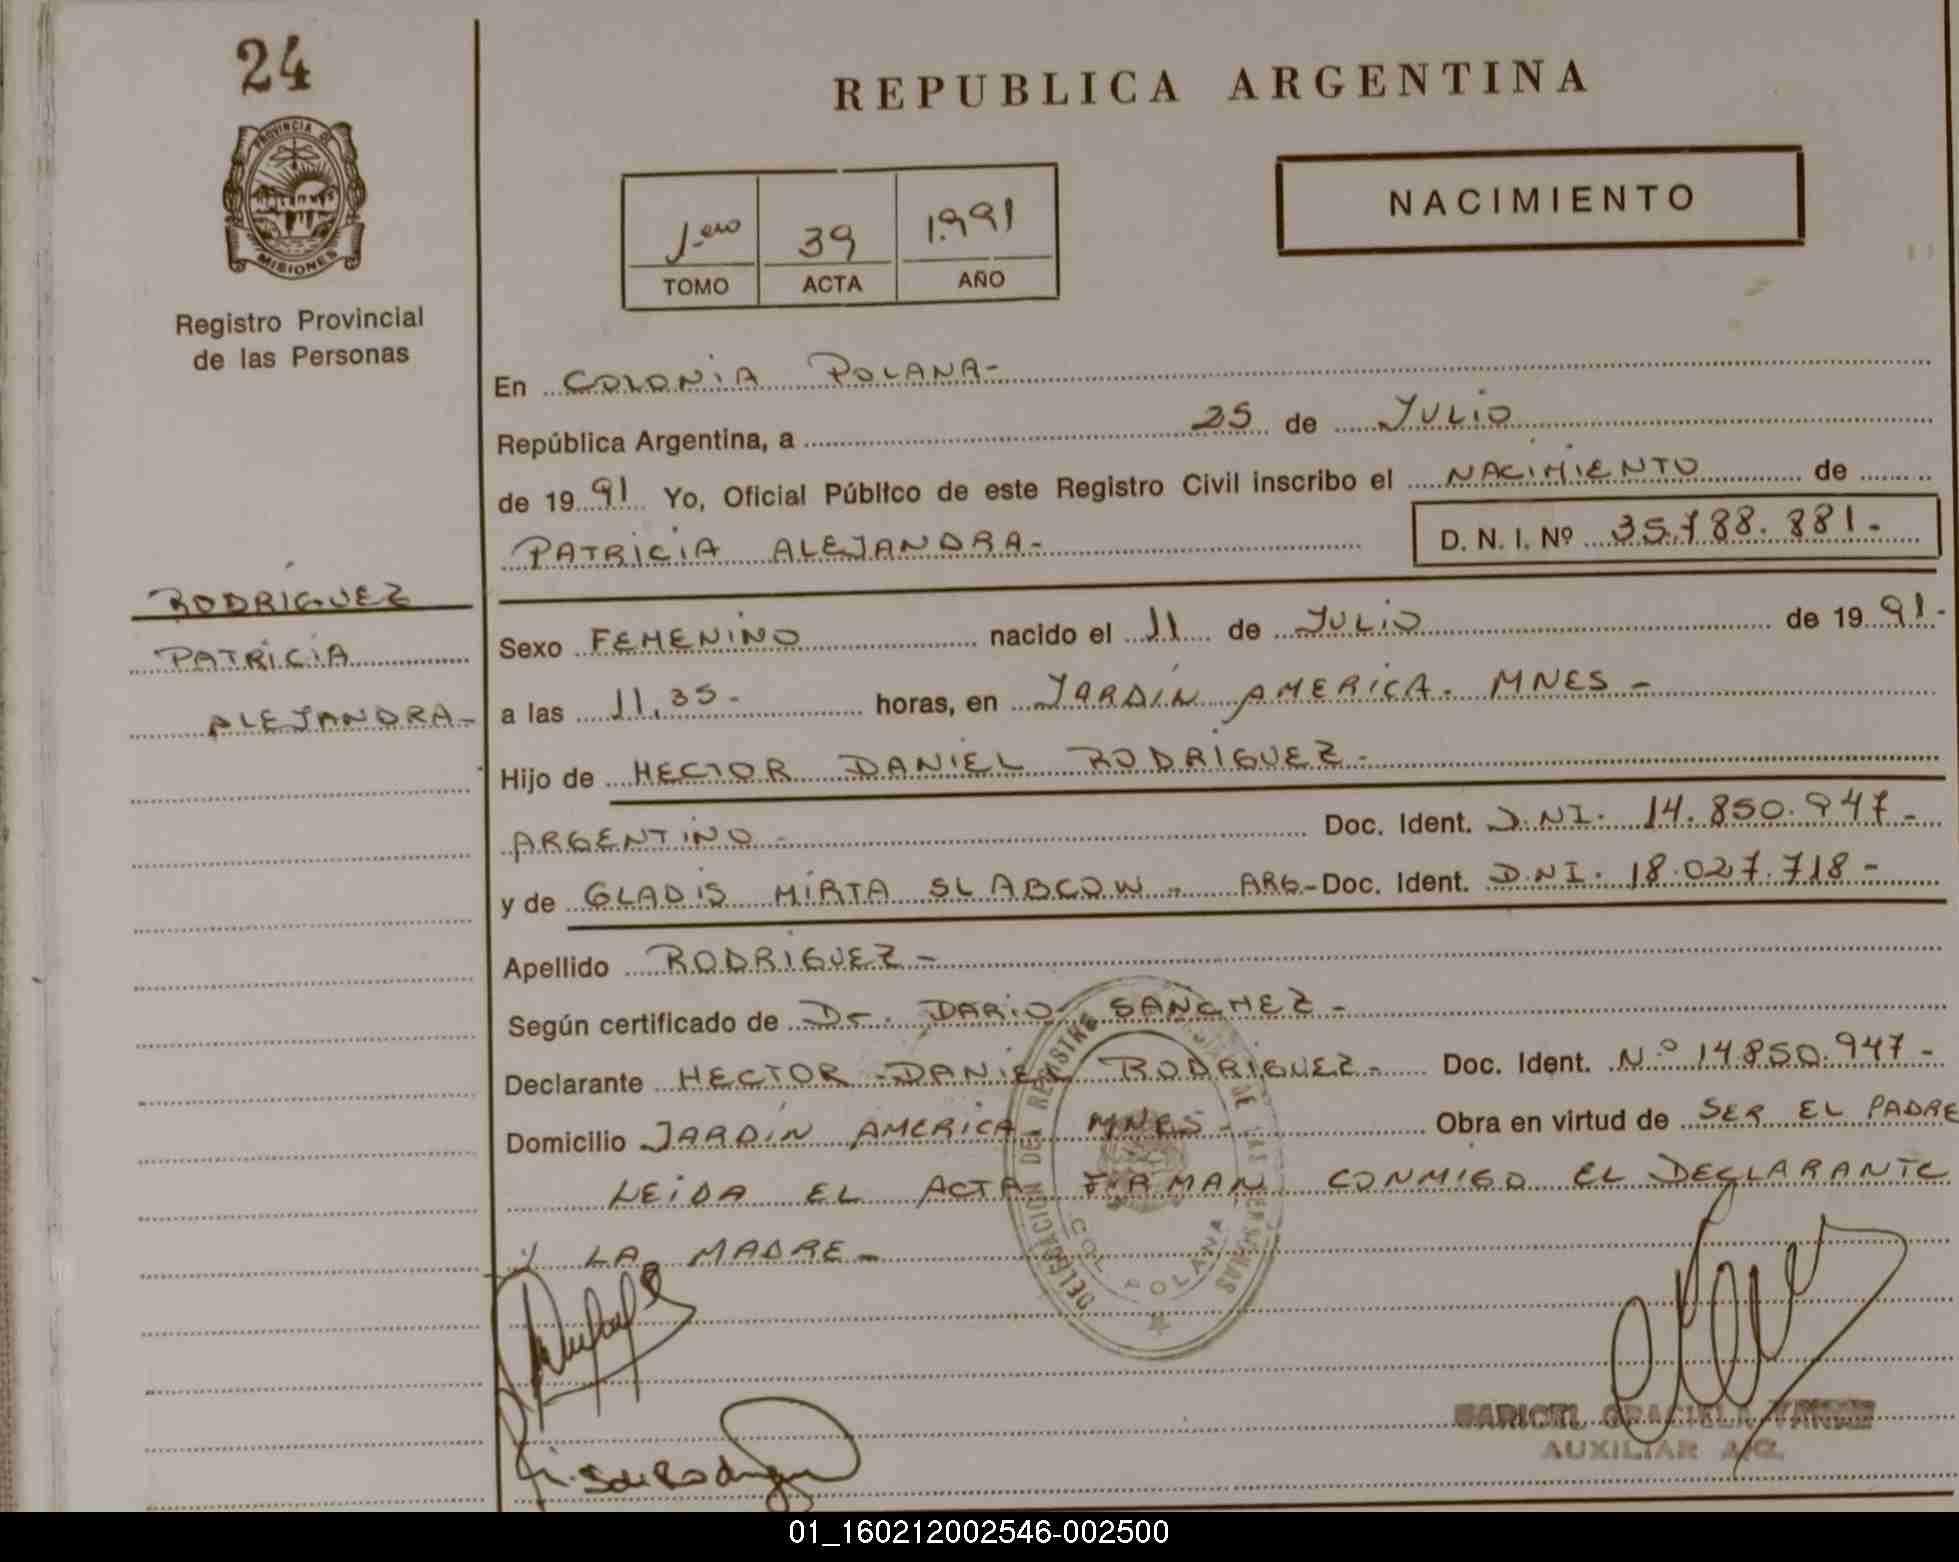 24
REPUBLICA ARGENTINA
PROVINCIA DE
MISIONES
Registro Provincial
de las Personas
NACIMIENTO
1.ero 39 1.991
TOMO ACTA AÑO
En COLONIA POLANA-
República Argentina, a 25 de JULIO
de 19 91 Yo, Oficial Público de este Registro Civil inscribo el NACIMIENTO de
PATRICIA ALEJANDRA- D. N. I. Nº 35.788.881.-
RODRÍGUEZ
PATRICIA
ALEJANDRA-
Sexo FEMENINO nacido el 11 de JULIO de 19 91.-
a las 11,35- horas, en JARDÍN AMERICA. MNES-
Hijo de HECTOR DANIEL RODRÍGUEZ-
ARGENTINO- Doc. Ident. D.NI. 14.850.947-
y de GLADIS MIRTA SLABCOW- ARG- Doc. Ident. D.NI. 18.027.718-
Apellido RODRIGUEZ-
Según certificado de Dr. DARIO SANCHEZ-
Declarante HECTOR DANIEL RODRIGUEZ- Doc. Ident. N.º 14.850.947-
Domicilio JARDÍN AMERICA MNES- Obra en virtud de SER EL PADRE
LEIDA EL ACTA FIRMAN CONMIGO EL DECLARANTE
Y LA MADRE-
DELEGACION DEL REGISTRO DE LAS PERSONAS
COL POLANA
S de Rodriguez
GRACIELA
AUXILIAR
01_160212002546-002500